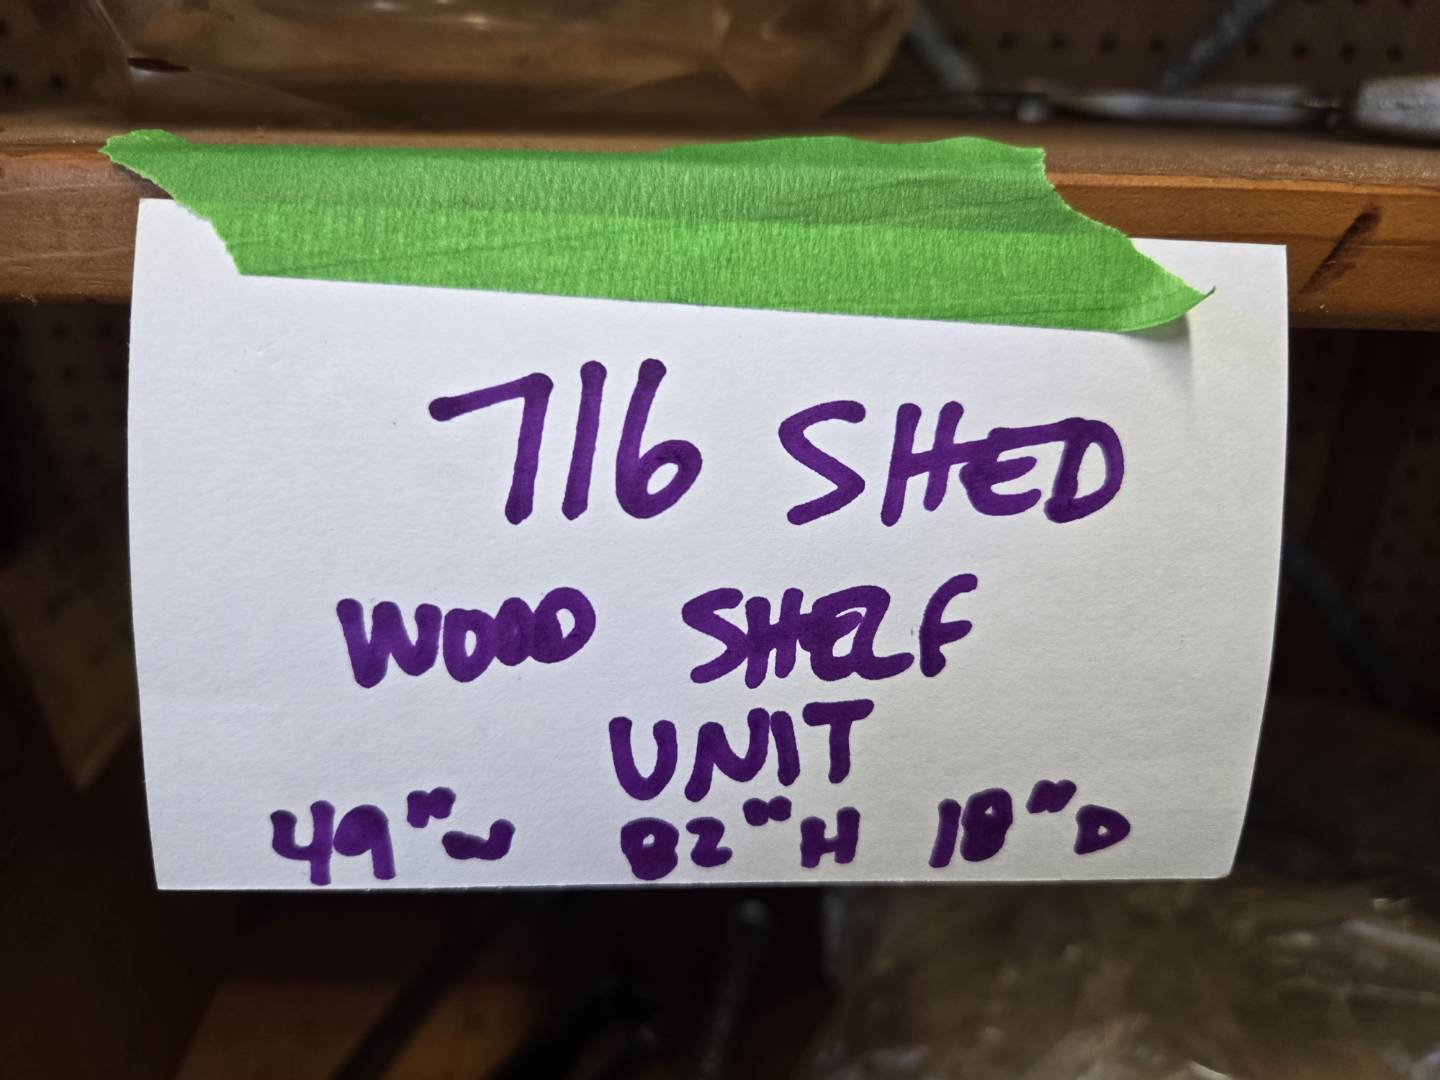 716 SHED
WOOD SHELF
UNIT
49"W 82"H 18"D